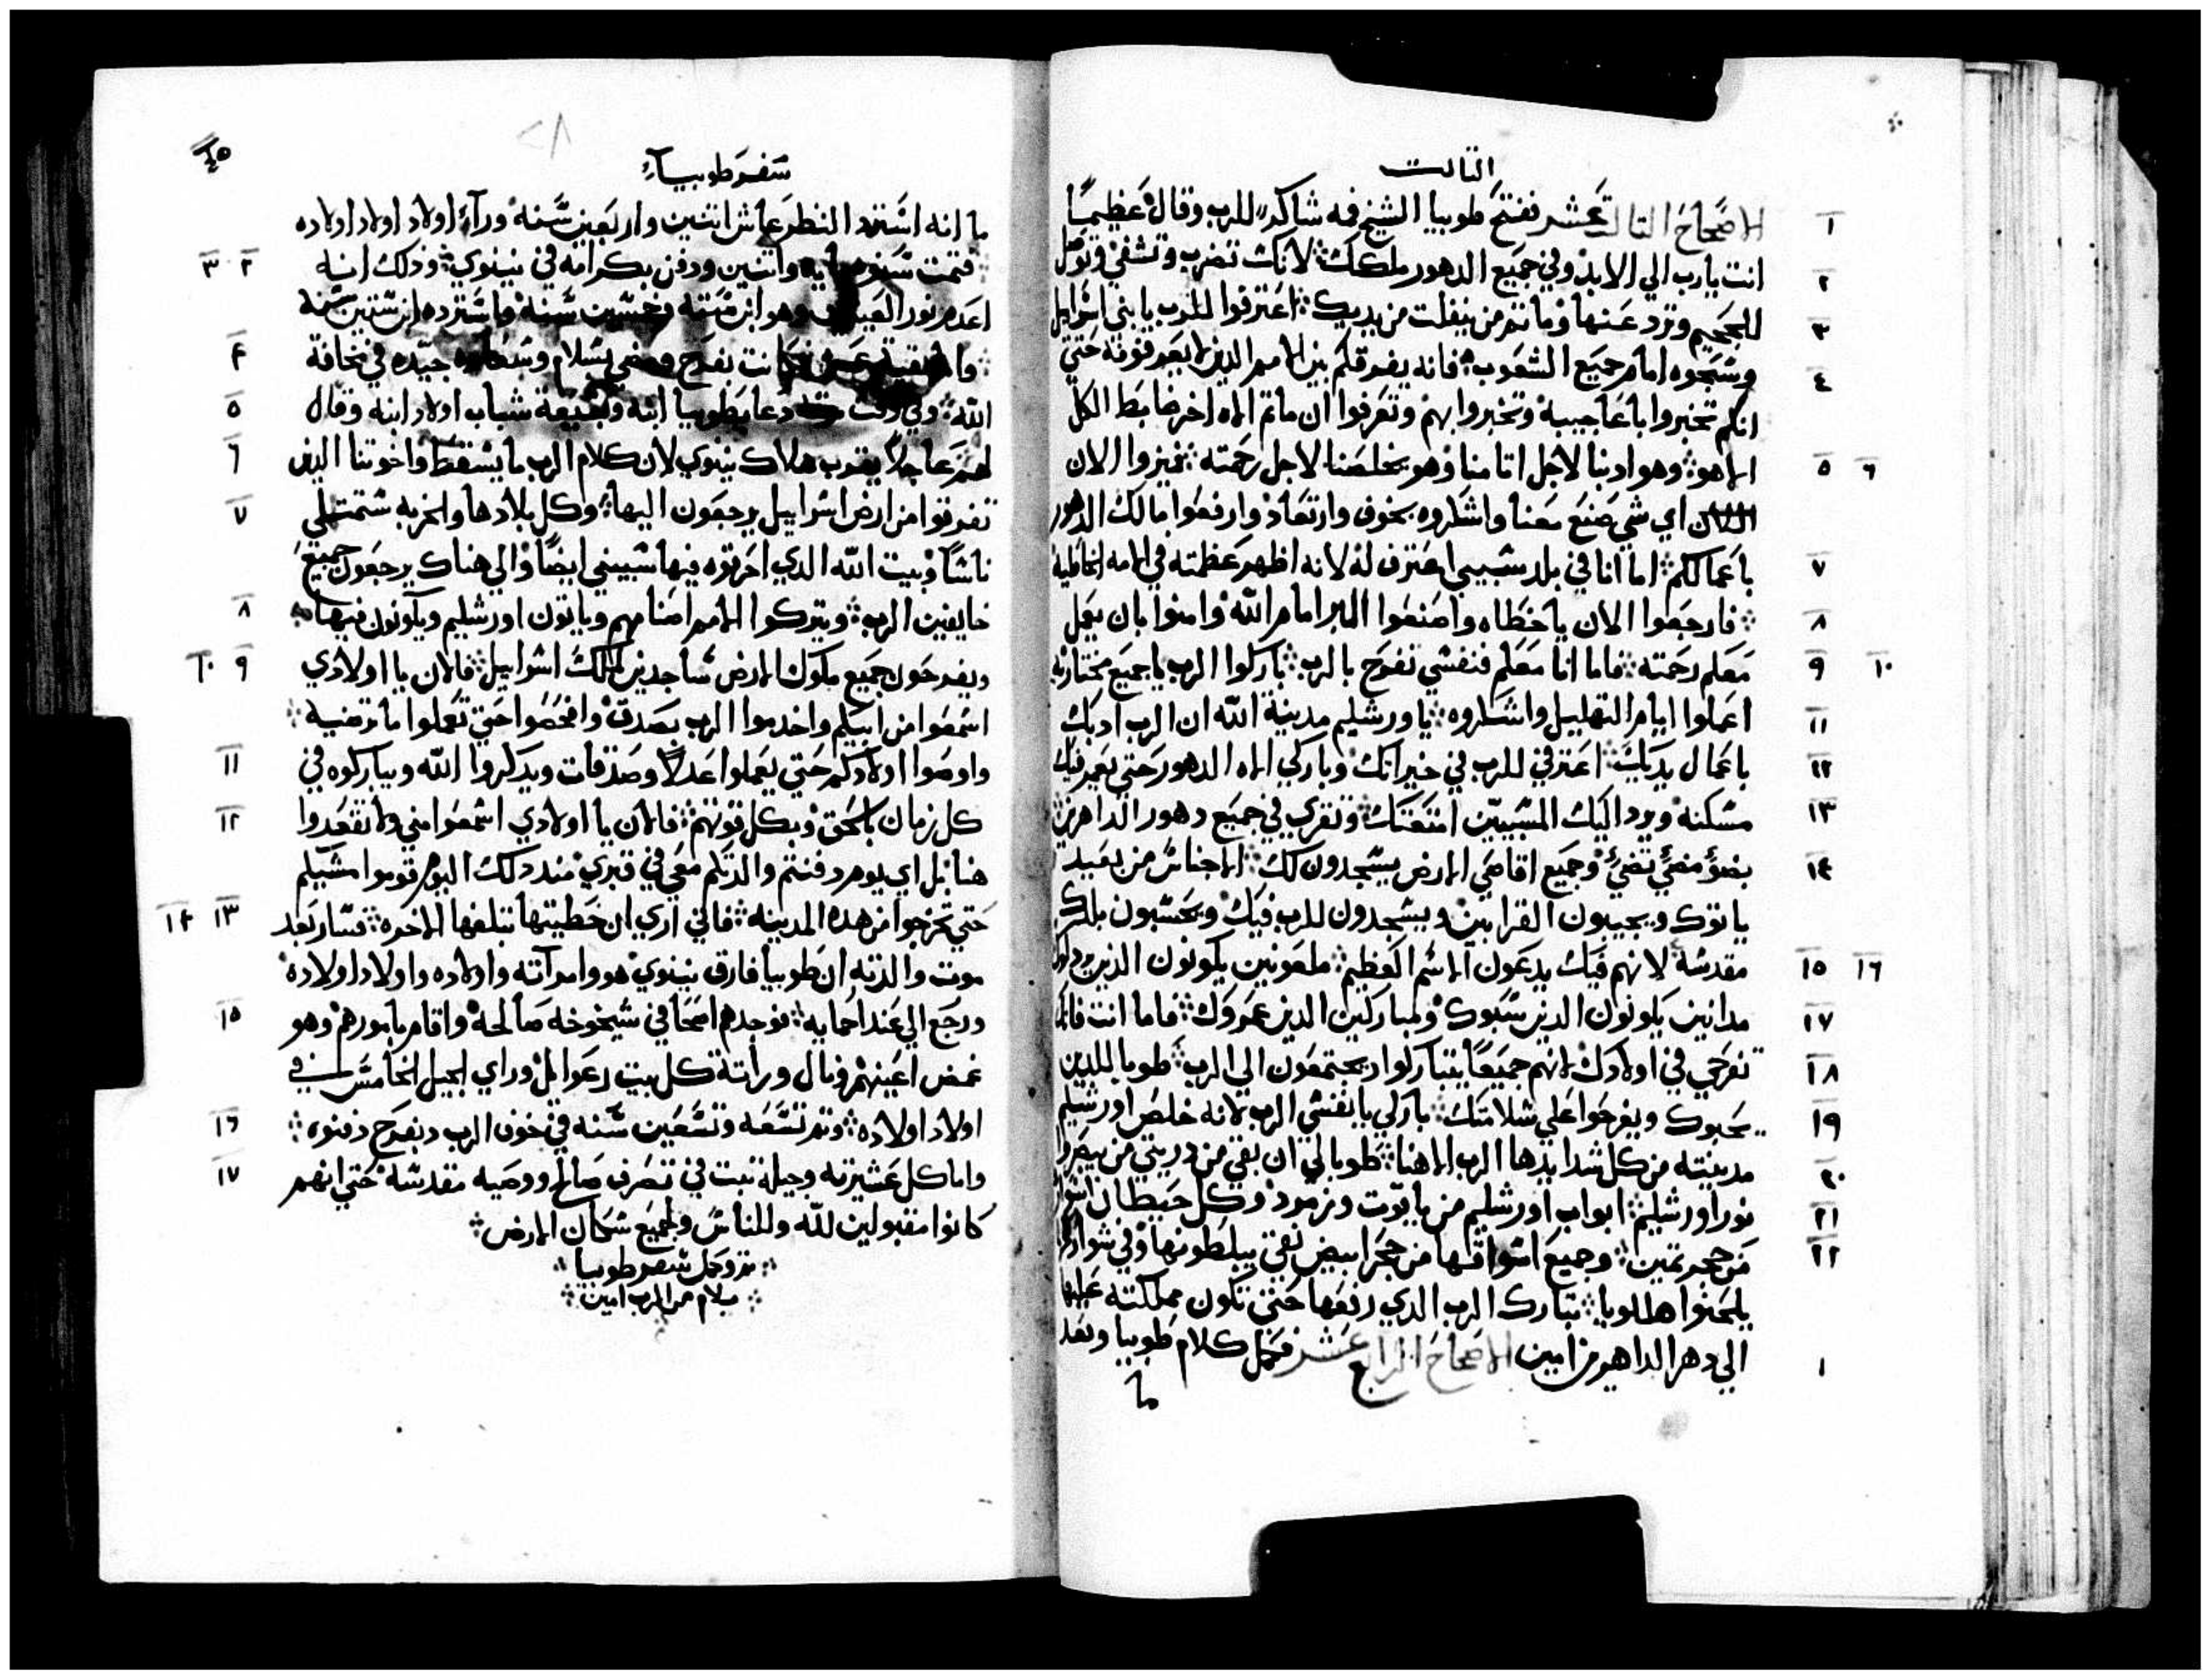 التالت
الاصحاح التالت عشر ففتح طوبيا الشيخ فمه شاكرًا للرب وقال عظيمًا
انت يارب الي الابد وفي جميع الدهور ملكك لانك تضرب وتشفي وتوصل
للجحيم وترد عنها وما تم من ينفلت من يديك اعترفوا للرب يا بني اسراييل
وسبحوه امام جميع الشعوب فانه يفرقكم بين الامم الذين لا يعرفونه حتي
انكم تخبروا باعاجيبه وتخبروا بهم وتعرفوا ان ماتم اله اخر ضابط الكل
الا هو وهو ادبنا لاجل اتامنا وهو يخلصنا لاجل رحمته تميزوا الان
اي شي صنع معنا واشكروه بخوف وارتعاد وارفعوا مالك الدهور
باعمالكم اما انا في بلد سبيي اعترف له لانه اظهر عظمته في الامه الخاطيه
فارجعوا الان يا خطاه واصنعوا البر امام الله وامنوا بان يعمل
معكم رحمته فاما انا معكم فنفسي تفرح بالرب باركوا الرب يا جميع مختاريه
اعملوا ايام التهليل واشكروه يا اورشليم مدينة الله ان الرب ادبك
باعمال يديك اعترفي للرب في خيراتك وباركي اله الدهور حتي يعمر فيك
مسكنه ويرد اليك المسبيين امتعتك وتفرحي في جميع دهور الداهرين
بضوء مضي تضي وجميع اقاصي الارض يسجدون لك الاجناس من بعيد
ياتوك ويجيبون القرابين ويسجدون للرب فيك ويحسبون بلدك
مقدسة لانهم فيك يدعون الاسم العظيم ملعونين يكونون الذين
مدانين يكونون الذين سبوك ومباركين الذين عمروك فاما انت فانك
تفرحي في اولادك لانهم جميعًا يتباركوا ويجتمعون الي الرب طوبا للدين
يحبوك ويفرحوا علي سلامتك باركي يا نفسي الرب لانه خلص اورشليم
مدينته من كل شدايدها الرب الاهنا طوبا لي ان بقي من دريتي من يبصروا
نور اورشليم ابواب اورشليم من ياقوت وزمرد وكل حيطان اسوارها
من حجر تمين وجميع اسواقها من حجر ابيض نقي يبلطونها وفي شوارعها
يلحنوا هللويا تبارك الرب الذي رفعها حتي تكون مملكته عليها
الي دهر الداهرين امين الاصحاح الرابع عشر فكمل كلام طوبيا وبعد
ما
سفر طوبيا
ما انه استرد النظر عاش اتنين واربعين سنه وراء اولاد اولاد اولاده
فتمت سنوه مايه واتنين ودفن بكرامه في نينوي وذلك انه
اعدم نور العينين وهو ابن سته وخمسين سنه واسترده ابن ستين سنة
والبقية كانت بفرح ومضي بسلام جيده في مخافة
الله وفي وقت دعا بطوبيا ابنه وسبعة شباب اولاد ابنه وقال
لهم عاجلًا يقرب هلاك نينوي لان كلام الرب ما يسقط واخوتنا الذين
تفرقوا من ارض اسراييل يرجعون اليها وكل بلادها والخربه ستمتلي
ناسًا وبيت الله الذي احرقوه فيها سيبني ايضًا والي هناك يرجعون جميع
خايفين الرب ويتركوا الامم اصنامهم وياتون اورشليم ويكونون فيها
ويفرحون جميع ملوك الارض ساجدين لملك اسراييل فالان يا اولادي
اسمعوا من ابيكم واخدموا الرب بصدق وافحصوا حتي تعملوا ما يرضيه
واوصوا اولادكم حتي يعملوا عدلًا وصدقات ويذكروا الله ويباركوه في
كل زمان بالحق وبكل قوتهم فالان يا اولادي اسمعوا مني ولا تقعدوا
هنا بل اي يوم دفنتم والدتكم معي في قبري مند دلك اليوم قوموا مشيكم
حتي تخرجوا من هده المدينه فاني اري ان خطيتها تبلغها للاخره فصار بعد
موت والدته ان طوبيا فارق نينوي هو وامرآته واولاده واولاد اولاده
ورجع الي عند احمايه فوجدهم اصحا في شيخوخه صالحة واقام بامورهم وهو
غمض اعينهم ونال وراتة كل بيت رعوايل وراي الجيل الخامس بني
اولاد اولاده وتم تسعه وتسعين سنه في خوف الرب وبفرح دفنوه
واما كل عشيرته وجيله تبت في تصرف صالح ووصيه مقدسة حتي انهم
كانوا مقبولين لله وللناس ولجميع سكان الارض
تم وكمل سفر طوبيا
بسلام من الرب امين